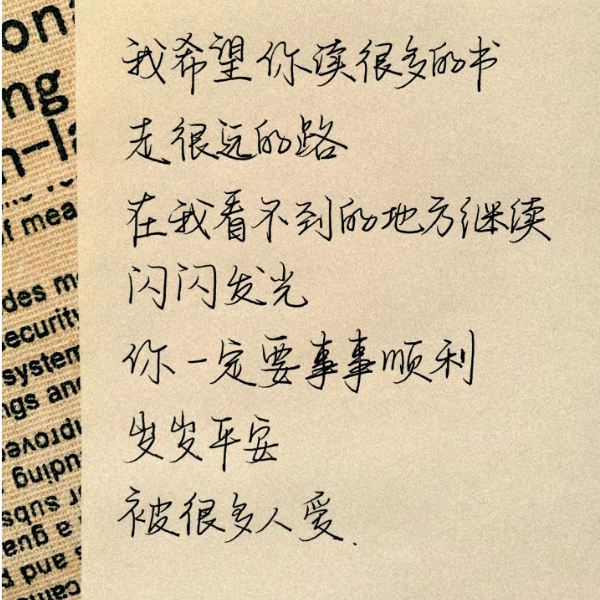 我希望你读很多的书
走很远的路
在我看不到的地方继续
闪闪发光
你一定要事事顺利
岁岁平安
被很多人爱.
on
ng
n-la
f mea
des m
ecurity
system
ngs and